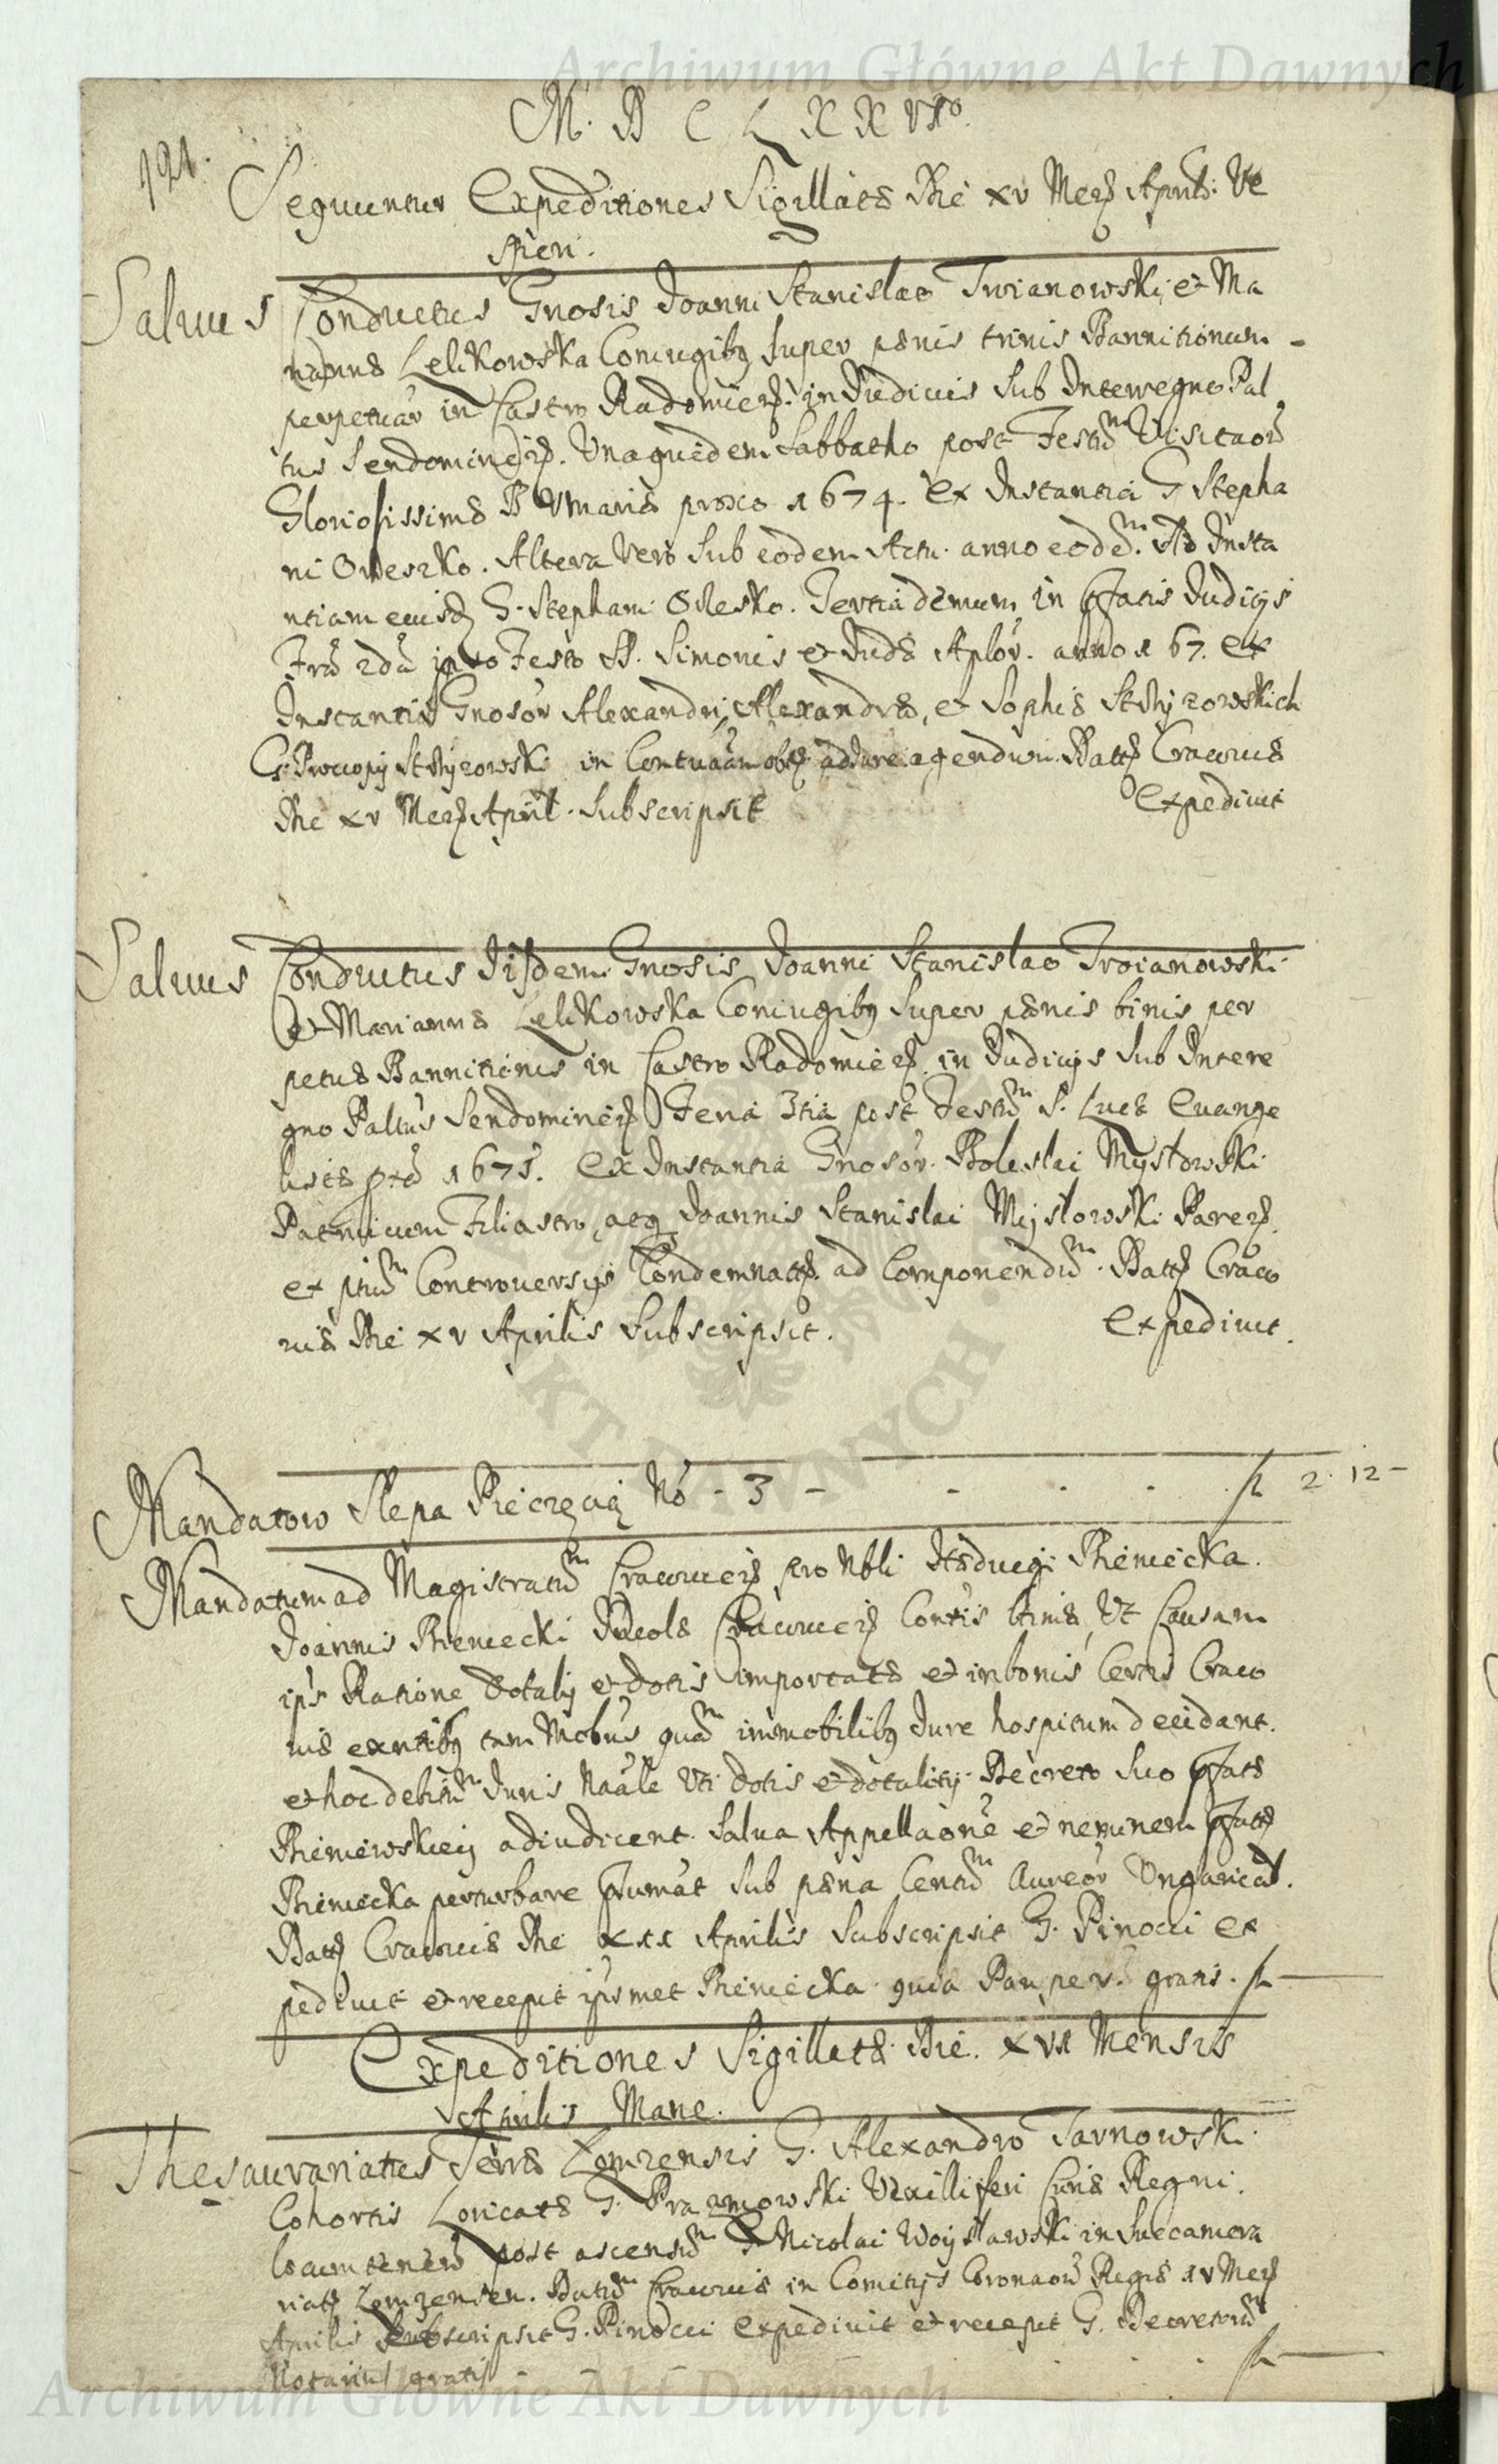 Archiwum Główne Akt Dawnych
M. D C L X X VIo
121.
Sequuntur Expeditiones Sigillatæ Die xv Mens Aprilis Ve
speri.
Saluus Conductus Gnosis Joanni Stanislao Troianowski et Ma
riannæ Lelikowska Coniugibq super pænis trinis Bannitionum
perpetuar in Castro Radomien. in Judiciis sub Interregno Pal
tus Sendomirien. Una quidem Sabbatho post Festum Visitaoni
Gloriosissimæ B V Mariæ proxo 1674. Ex Instantia G Stepha
ni Oleszko. Altera Vero sub eodem Actu. anno eodem. Ad Insta
ntiam eiusd G. Stephani Olesko. Tertia demum in Judicijs
Feria 2da Festo SS. Simonis et Judæ Aplor. anno 167. Ex
Instantia Gnosor Alexandri, Alexandræ, et Sophiæ
in agendum. Datt Cracouiæ
Die xv Mens April. Subscripsit Expediuit
Saluus Conductus Iisdem Gnosis Joanni Stanislao Troianowski
et Mariannæ Lelikowska Coniugibq super pænis binis per
petuæ Bannitionis in Castro Radomien. in Judicijs sub Interre
gno Paltus Sendomirien Feria 3tia post Festum S. Lucæ Euange
listæ 1675. Ex Instantia Gnosor. Boleslai Mysłowski
Patruum Filiastro, atq Joannis Stanislai Mysłowski Paren.
ex Controuersijs Condemnatt ad Componendum. Datt Craco
uiæ Die xv Aprilis Subscripsit. Expediuit.
Mandatow Slepa Pieczęcią No - 3 - - . . fl 2. 12 -
Mandatum ad Magistratum Cracouien pro Nbli Hæduegi Thenecka
Joannis Thenecki Incolæ Cracouien Ut Causam
ips Ratione dotalij et dotis importatæ et in bonis Certis Craco
uiæ exntibq tam Mobus quam immobilibq Jure hospitum decidant.
et hoc debitum Juris Naale Uti dotis et dotalitij Decreto suo
adiudicent. Salua Appellaone et neminem
Thenecka perturbare sub pæna Centum Aureor Ungarical.
Datt Cracouiæ Die Aprilis Subscripsit G. Pinocci Ex
pediuit et recepit ipsmet Thenecka quia Pauper. gratis. fl —
Expeditiones Sigillatæ Die. xvi Mensis
Aprilis Mane.
Thesaurariatus Terræ Lomzensis G. Alexandro Tarnowski
Cohortis Loricatæ G. Prazmowski Vexilliferi Curiæ Regni.
locumtenen post ascensum G Nicolai Woysławski in Succamera
riatt Lomzensem. Datum Cracouiæ in Comitijs Coronaonis Regiæ xv Mens
Aprilis Subscripsit G. Pinocci Expediuit et recepit G. Decretorum
Notarius gratis - . . . fl —
Archiwum Główne Akt Dawnych